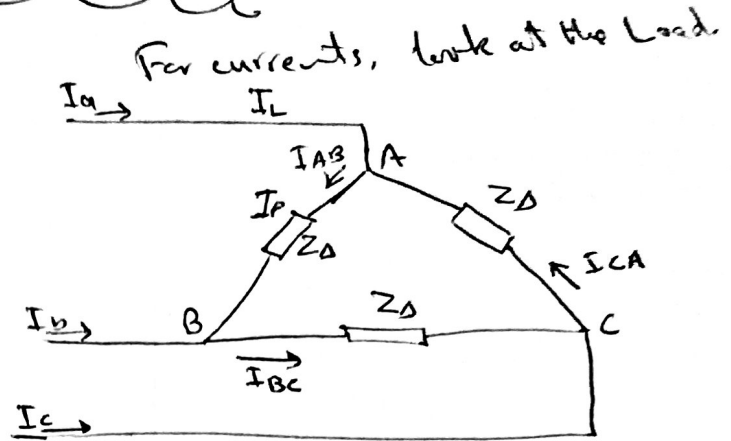 For currents, look at the Load.
Ia IL
IAB A
IP ZΔ
ZΔ
ICA
ZΔ
Ib B C
IBC
Ic